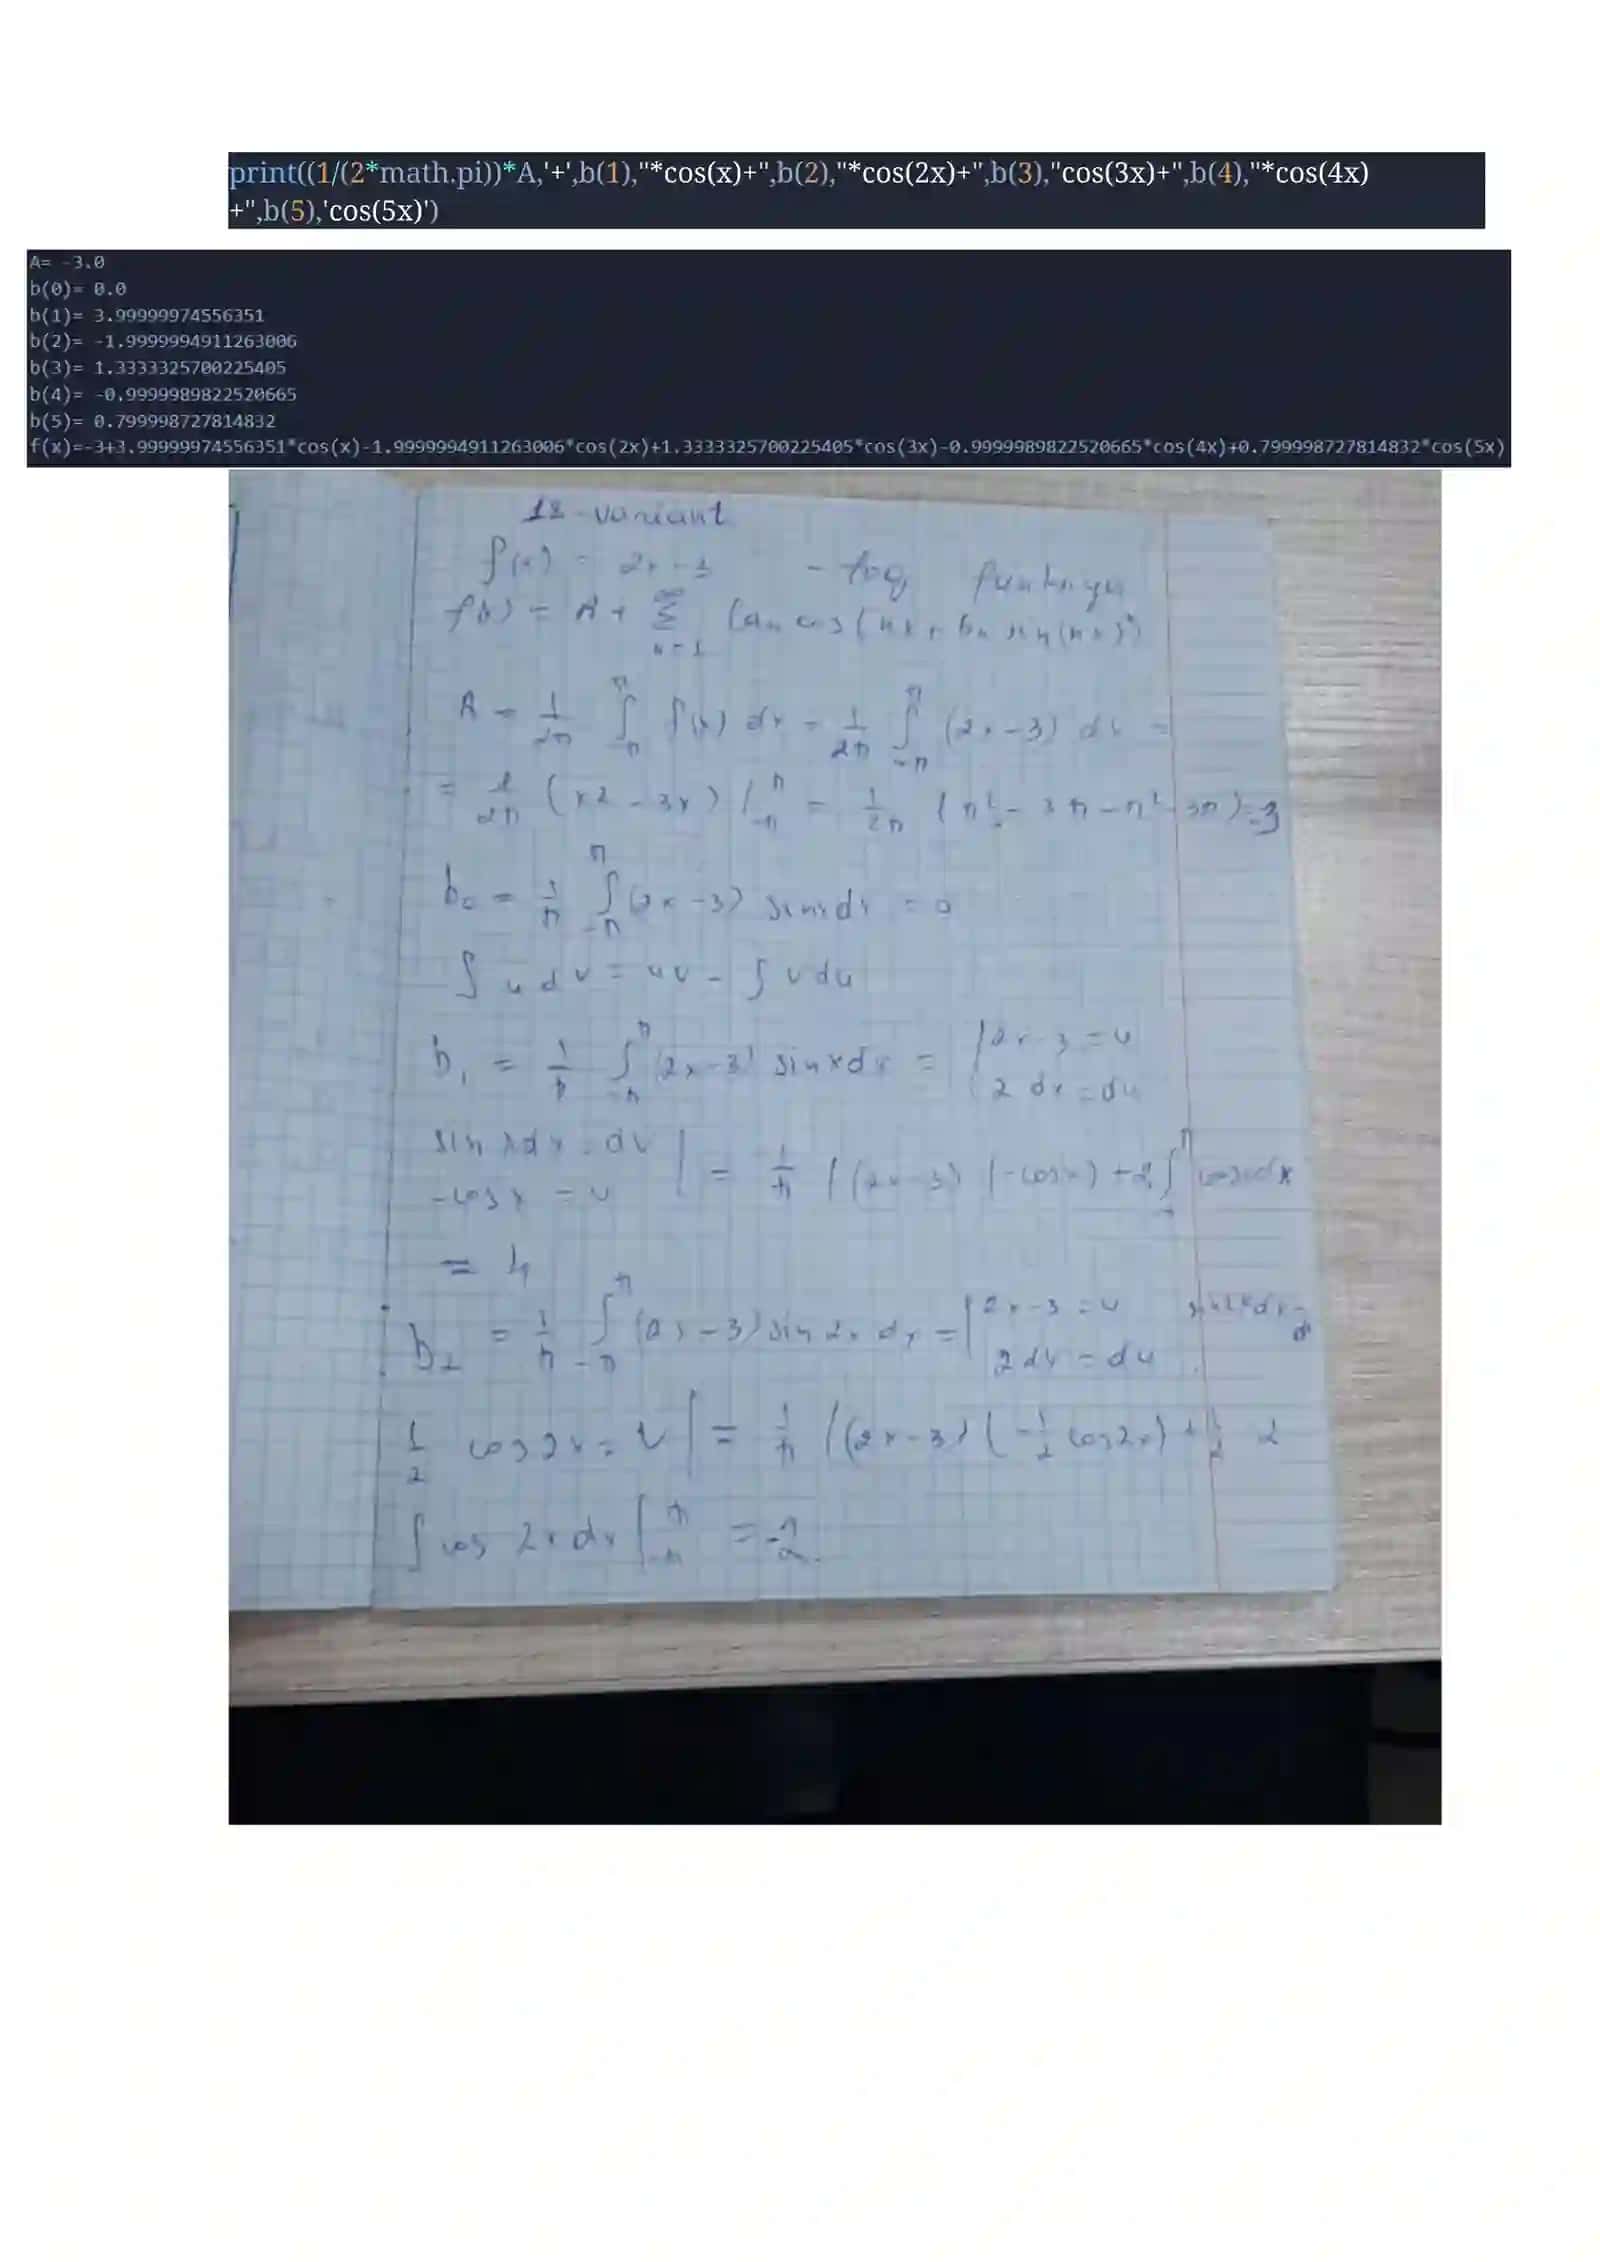 print((1/(2*math.pi))*A,'+',b(1),"*cos(x)+",b(2),"*cos(2x)+",b(3),"cos(3x)+",b(4),"*cos(4x)
+",b(5),'cos(5x)')
A= -3.0
b(0)= 0.0
b(1)= 3.99999974556351
b(2)= -1.9999994911263006
b(3)= 1.3333325700225405
b(4)= -0.9999989822520665
b(5)= 0.799998727814832
f(x)=-3+3.99999974556351*cos(x)-1.9999994911263006*cos(2x)+1.3333325700225405*cos(3x)-0.9999989822520665*cos(4x)+0.799998727814832*cos(5x)
-variant
f(x) = 2x-3 - toq funksiya
f(x) = A + ∑ n=1 ∞ (an cos(nx + bn sin(nx))
A = 1/2π ∫ -π π f(x) dx = 1/2π ∫ -π π (2x-3) dx =
= 1/2π (x2 - 3x) | -π π = 1/2π (π² - 3π - π² - 3π) = -3
b0 = 1/π ∫ -π π (2x-3) sinxdx = 0
∫ u dv = uv - ∫ v du
b1 = 1/π ∫ -π π (2x-3) sinxdx = | 2x-3 = u
2 dx = du
sin xdx = dv
-cosx = v | = 1/π ((2x-3) (-cosx) + 2 ∫ π cosxdx
= 4
b2 = 1/π ∫ -π π (2x-3) sin2x dx = | 2x-3 = u sin2xdx =
2dx = du
1/2 cos2x = v | = 1/π ((2x-3) (-1/2 cos2x) + 1/2 2
∫ cos 2x dx | -π π = -2